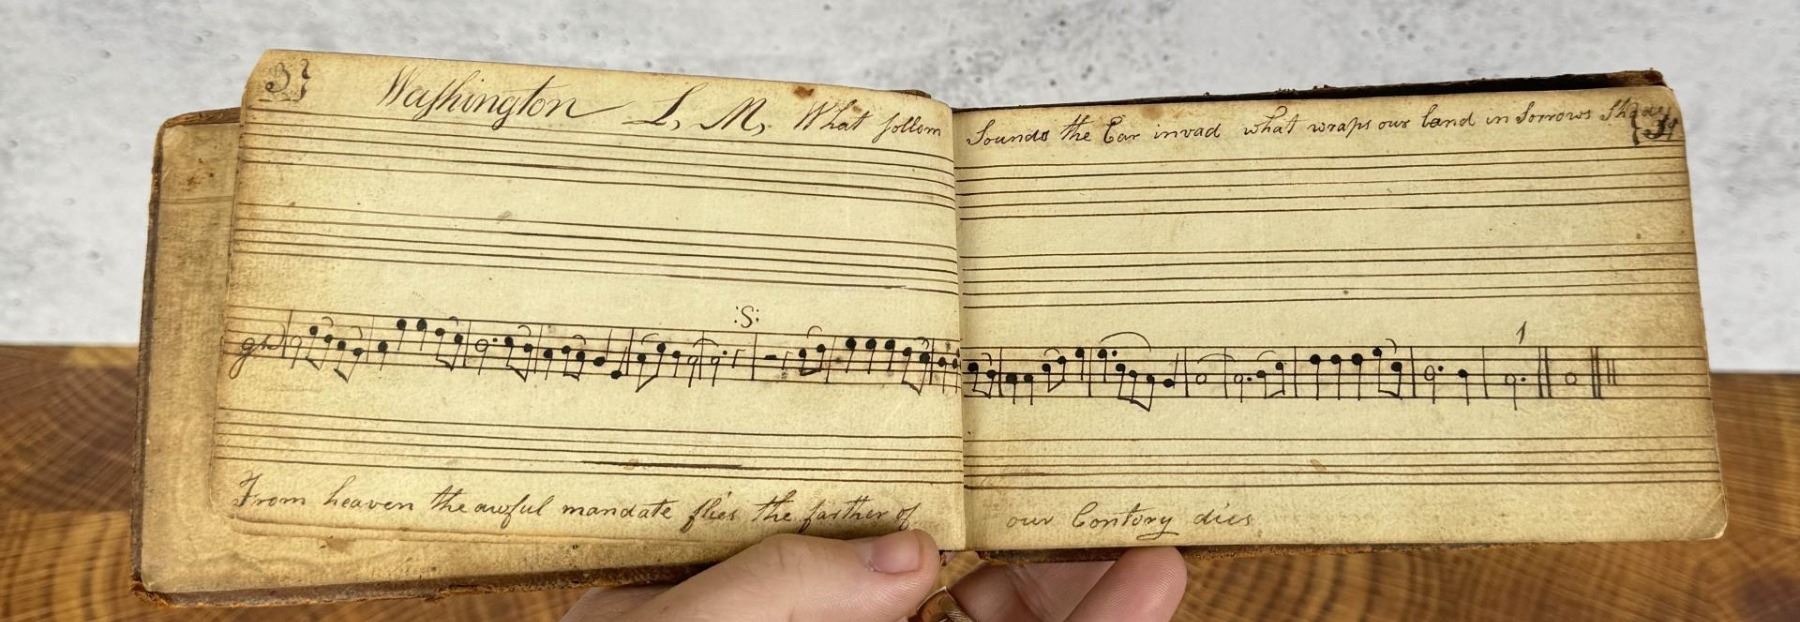 Washington L, M, What follow Sounds the Ear invad what wraps our land in Sorrows Shade
:S:
1
From heaven the awful mandate flies the farther of our Contory dies